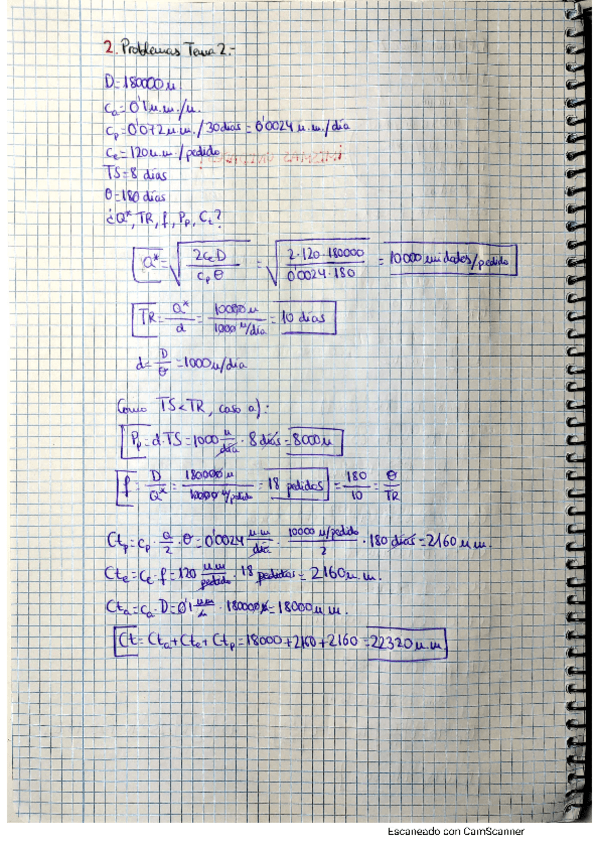 2. Problemas Tema 2.-
D=180000 u
ca=0'1 u.m./u.
cp=0'072 u.m./30 días = 0'0024 u.m./día
ce=120 u.m./pedido
TS=8 días
θ=180 días
¿Q*, TR, f, Pp, Ct?
Q* = √(2ceD / cpθ) = √(2·120·180000 / 0'0024·180) = 10000 unidades/pedido
TR = Q*/d = 10000 u / 1000 u/día = 10 días
d = D/θ = 1000 u/día
Como TS<TR, caso a):
Pp = d·TS = 1000 u/día · 8 días = 8000 u
f = D/Q* = 180000 u / 10000 u/pedido = 18 pedidos = 180/10 = θ/TR
Ctp = cp · Q/2 · θ = 0'0024 u.m/día · 10000 u/pedido / 2 · 180 días = 2160 u.m.
Cte = ce · f = 120 u.m/pedido · 18 pedidos = 2160 u.m.
Cta = ca · D = 0'1 u.m/u · 180000 u = 18000 u.m.
Ct = Cta + Cte + Ctp = 18000 + 2160 + 2160 = 22320 u.m
Escaneado con CamScanner